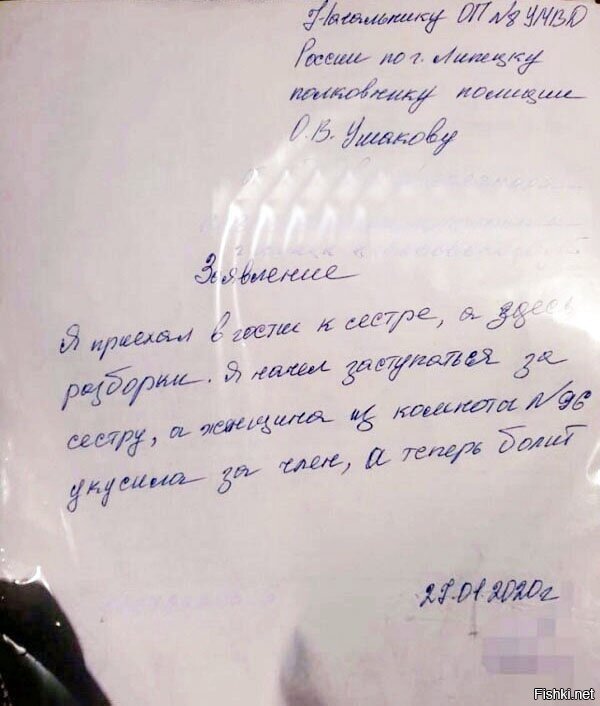 Начальнику ОП №8 УМВД
России по г. Липецку
полковнику полиции
О.В. Ушакову
Заявление
Я приехал в гости к сестре, а здесь
разборки. Я начел заступаться за
сестру, а женщина из комнота №96
укусила за член, а теперь болит
29.01.2020г
Fishki.net